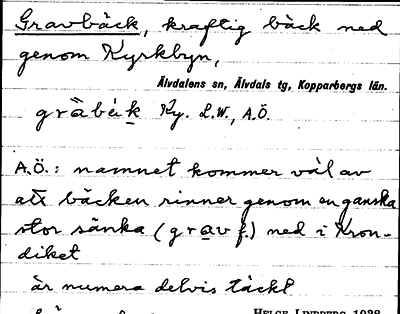 Gravbäck, kraftig bäck ned
genom Kyrkbyn,
Älvdalens sn, Älvdals tg, Kopparbergs län.
Ky. L.W., A.Ö.
A.Ö.: namnet kommer väl av
att bäcken rinner genom en ganska
stor sänka (grav f.) ned i Kron-
diket
är numera delvis täckt
HELGE LINDBERG 1938